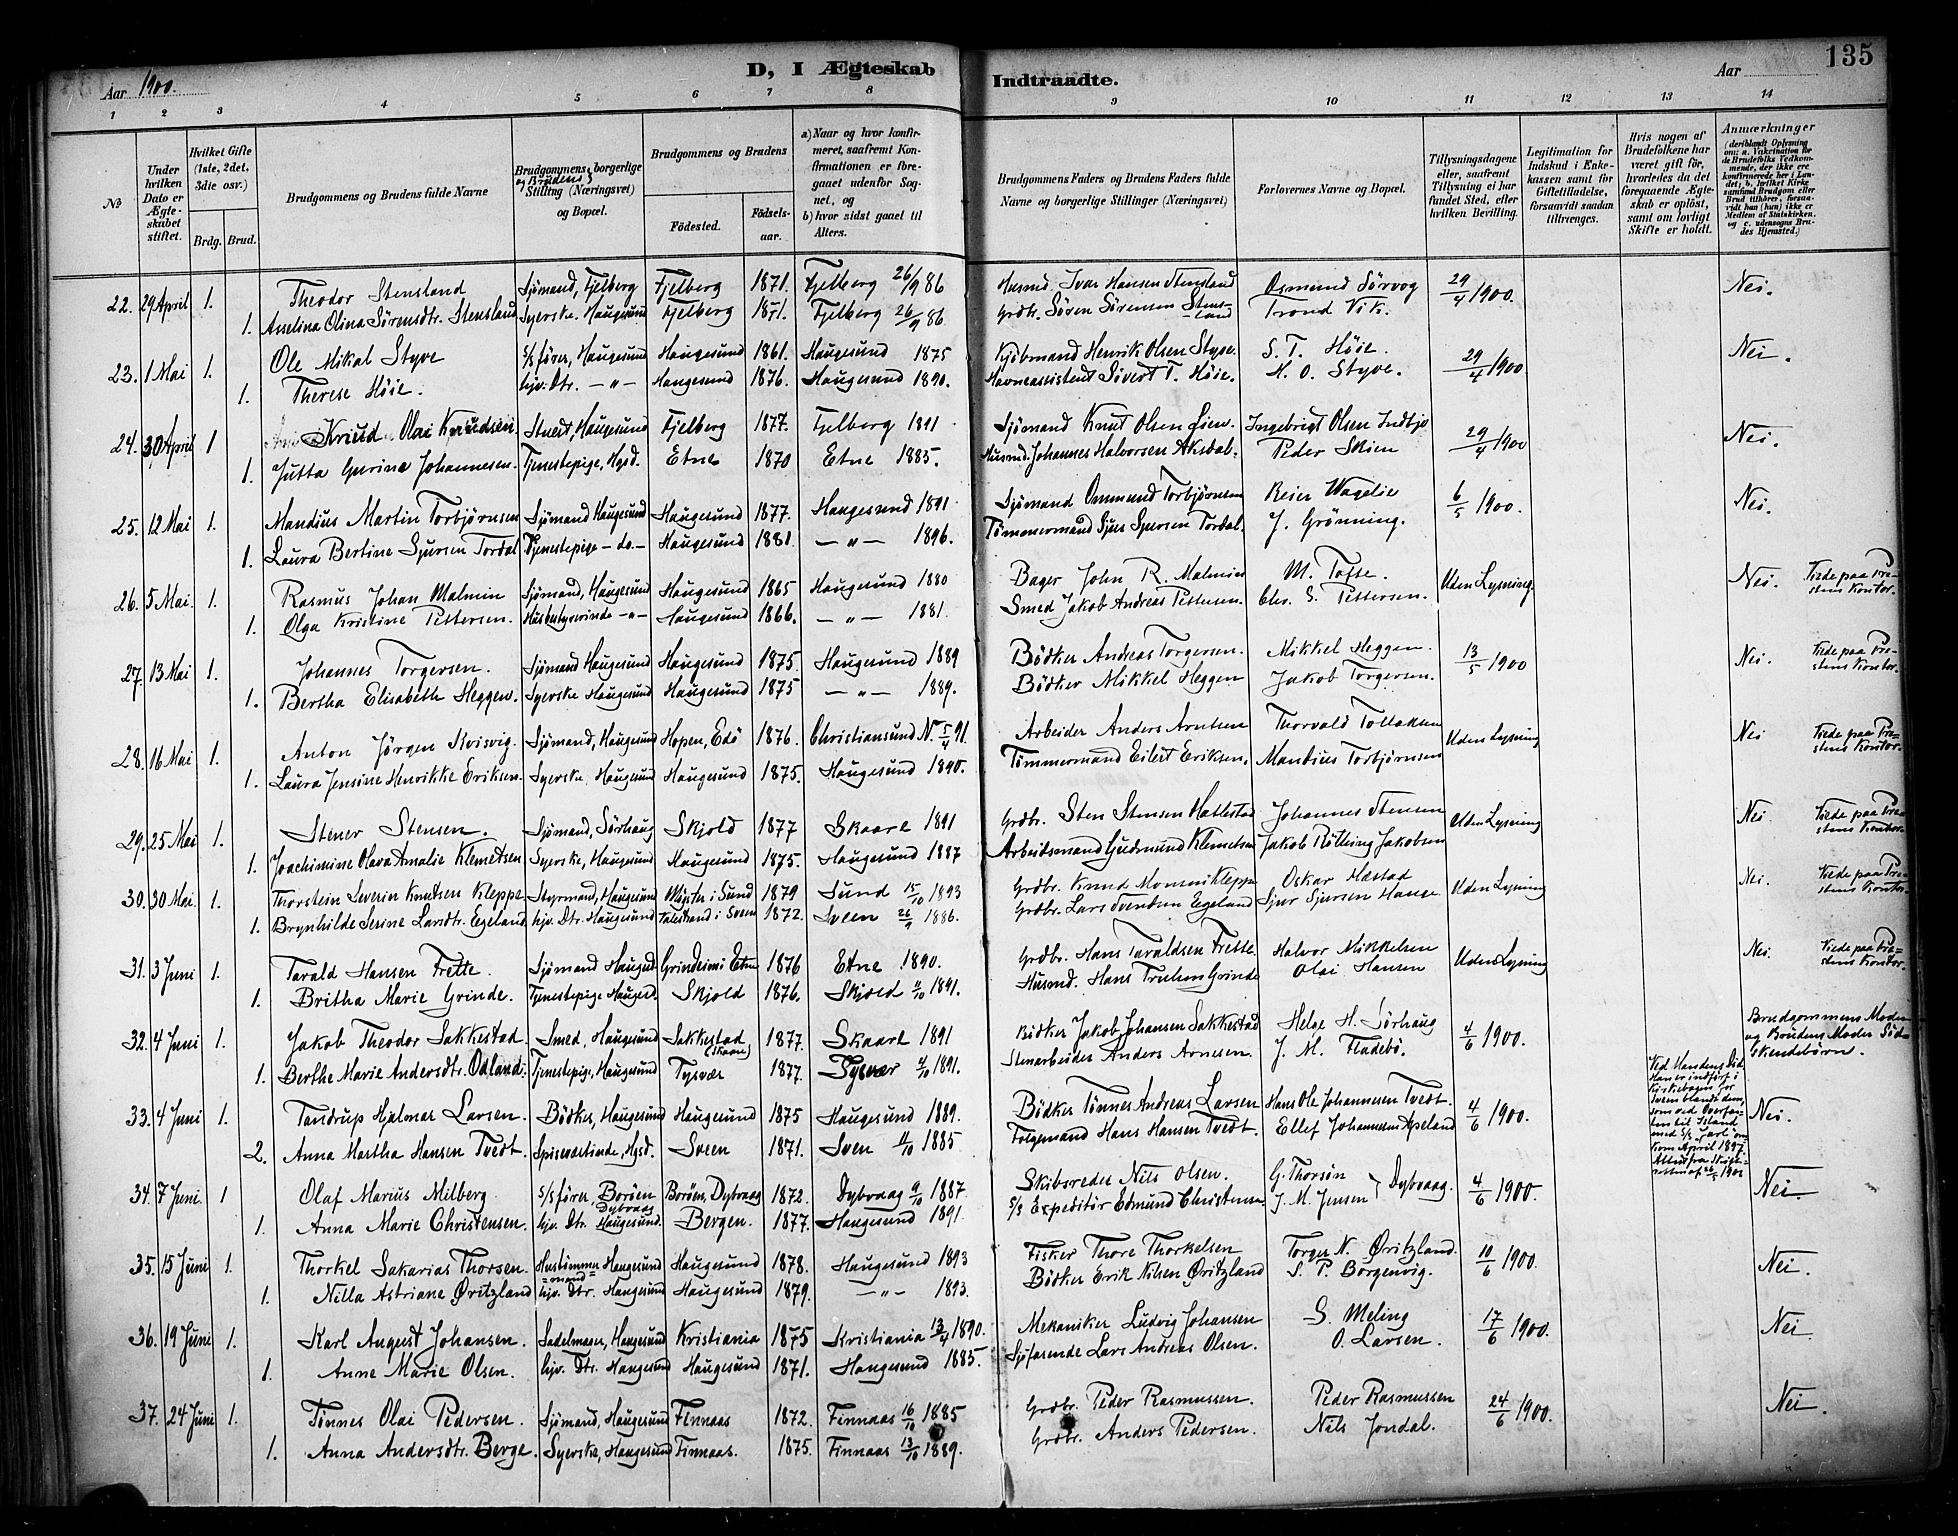 135
D, I Ægteskab Indtraadte.
Aar 1900.
Aar
1 2 3 4 5 6 7 8 9 10 11 12 13 14
No
Under hvilken Dato er Ægteskabet stiftet.
Hvilket Gifte (1ste, 2det, 3die osv.)
Brdg. Brud.
Brudgommens og Brudens fulde Navne
Brudgommens og Brudens borgerlige Stilling (Næringsvei) og Bopæl.
Brudgommens og Brudens
Fødested. Fødselsaar.
a) Naar og hvor konfirmeret, saafremt Konfirmationen er foregaaet udenfor Sognet, og
b) hvor sidst gaaet til Alters.
Brudgommens Faders og Brudens Faders fulde Navne og borgerlige Stillinger (Næringsvei)
Forlovernes Navne og Bopæl.
Tillysningsdagene eller, saafremt Tillysning ei har fundet Sted, efter hvilken Bevilling.
Legitimation for Indskud i Enkekassen samt for Giftetilladelse, forsaavidt saadan tiltrænges.
Hvis nogen af Brudefolkene har været gift før, hvorledes da det foregaaende Ægteskab er opløst, samt om lovligt Skifte er holdt.
Anmærkninger (deriblandt Oplysning om: a. Vakcination for de Brudefolks Vedkommende, der ikke ere konfirmerede her i Landet; b. hvilket Kirkesamfund Brudgom eller Brud tilhører, forsaavidt han (hun) ikke er Medlem af Statskirken, og c. udensogns Brudes Hjemsted.)
22. 29 April 1. Theodor Stensland Sjømand, Fjelberg Fjelberg 1871. Fjelberg 26/9 86 Husmd. Ivar Hansen Stensland Osmund Sørvog 29/4 1900. Nei.
1. Anselina Olina Sørensdtr. Stensland Syerske. Haugesund Fjelberg 1871. Fjelberg 26/9 86. Grdbr. Søren Sørensen Stensland Trond Vik.
23. 1 Mai 1. Ole Mikal Styve S/S fører, Haugesund Haugesund 1861. Haugesund 1875 Kjøbmand Henrik Olsen Styve. S. T. Høie. 29/4 1900 Nei.
1. Therese Høie. hjv. Dtr. —"— Haugesund 1876. Haugesund 1890. Havneassistent Sivert T. Høie. H. O. Styve.
24. 30 April 1 Knud Olai Knudsen. Stuert, Haugesund Fjelberg 1877. Fjelberg 1891 Sjømand Knut Olsen Lien. Ingebrigt Olsen Indbjo 29/4 1900 Nei.
1. Jutta Gurine Johannesen. Tjenestepige, Hgsd. Etne 1870 Etne 1885. Husmd. Johannes Halvorsen Aksdal. Peder Skien
25. 12 Mai 1. Mandius Martin Torbjørnsen Sjømand Haugesund Haugesund 1877. Haugesund 1891 Sjømand Ommund Torbjørnsen Reier Wagelie 6/5 1900. Nei.
1. Laura Bertine Sjursen Tordal Tjenestepige — do. — Haugesund 1881. —"— 1896. Tømmermand Sjurs Sjursen Tordal. J. Grønning.
26. 5 Mai. 1. Rasmus Johan Malmin Sjømand, Haugesund Haugesund 1865 Haugesund 1880 Bager John R. Malmin M. Tofte. Uden Lysning. Nei. Viede paa Præstens Kontor.
1. Olga Kristine Pettersen. Husbestyrerinde —"— Haugesund 1866. —"— 1881. Smed Jakob Andreas Pettersen. Chr. S. Pettersen.
27. 13 Mai 1. Johannes Torgersen. Sjømand Haugesund Haugesund 1875. Haugesund 1889 Bødker Andreas Torgersen. Mikkel Heggen. 13/5 1900 Nei. Viede paa Præstens Kontor.
1. Bertha Elisabeth Heggen. Syerske Haugesund Haugesund 1875 —"— 1889. Bødker Mikkel Heggen Jakob Torgersen.
28. 16 Mai 1. Anton Jørgen Kvisvig. Sjømand, Haugesund Hopen, Edø 1876. Christiansund N. 5/4 91 Arbeider Anders Arntsen Thorvald Tollaksen Uden Lysning Nei Viede paa Præstens Kontor.
1. Laura Jensine Henrikke Eriksen. Syerske, Haugesund Haugesund 1875. Haugesund 1890. Tømmermand Eilert Eriksen. Mandius Torbjørnsen
29. 25 Mai 1. Stener Stensen. Sjømand, Sørhaug Skjold 1877 Skaare 1891 Grdbr. Sten Stensen Hatlestad Johannes Stensen Uden Lysning Nei Viede paa Præstens Kontor.
1. Joachimine Olava Amalie Klemetsen Syerske, Haugesund Haugesund 1875. Haugesund 1887 Arbeidsmand Gudmund Klemetsen Jakob Rølling Jakobsen
30. 30 Mai. 1. Thorstein Severin Knutsen Kleppe Styrmand, Haugesund Møgster i Sund 1879 Sund 15/10 1893 Grdbr. Knud Monsen Kleppe Oskar Hæstad Uden Lysning Nei. Viede paa Præstens Kontor.
1. Brynhilde Serine Larsdtr. Egeland hjv. Dtr. Haugesund Valestrand i Sveen 1872. Sveen 26/9 1886. Grdbr. Lars Svendsen Egeland Sjur Sjursen Hauge
31. 3 Juni 1. Tarald Hansen Frette. Sjømand Haugsd Grindeim i Etne 1876 Etne 1890. Grdbr. Hans Taraldsen Frette Halvor Mikkelsen Uden Lysning Nei. Viede paa Præstens Kontor.
1. Britha Marie Grinde. Tjenestepige Haugesd. Skjold 1876. Skjold 11/10 1891. Husmd. Hans Trulsen Grinde Olai Hansen
32. 4 Juni 1. Jakob Theodor Sakkestad Smed, Haugesund Sakkestad (Skaare) 1877. Skaare 1891 Bødker Jakob Johansen Sakkestad Helge H. Sørhaug 4/6 1900. Brudgommens Moder og Brudens Moder Sødskendebørn.
1. Berthe Marie Andersdtr. Odland. Tjenestepige, Haugesund Tysvær 1877. Tysvær 4/10 1891. Stenarbeider Anders Arnesen. J. M. Fladebø.
33. 4 Juni 1. Tandrup Hjalmar Larsen. Bødker, Haugesund Haugesund 1875 Haugesund 1889. Bødker Tønnes Andreas Larsen Hans Ole Johannesen Tvedt. 4/6 1900. Nei.
2. Anna Martha Hansen Tvedt. Spiseværtinde, Hgsd. Sveen 1871. Sveen 11/10 1885 Følgemand Hans Hansen Tvedt. Ellef Johannesen Apeland
34. 7 Juni 1 Olaf Marius Milberg S/S fører Borøen Dybvaag Borøen, Dybvaag 1872. Dybvaag 9/10 1887. Skibsreder Nils Olsen. G. Thorsøn 4/6 1900. Nei
1. Anna Marie Christensen. hjv. Dtr. Haugesund. Bergen. 1877. Haugesund 1891 S/S Expeditør Edmund Christensen J. M. Jensen } Dybvaag.
35. 15 Juni 1. Thorkel Sakarias Thorsen. Hustømmermand Haugesund Haugesund 1878. Haugesund 1893 Fisker Thore Thorkelsen Torger N. Øritzland. 10/6 1900. Nei.
1. Nilla Astriane Øritzland hjv. Dtr. Haugesund Haugesund 1879. —"— 1893. Bødker Erik Nilsen Øritzland S. P. Borgenvig.
36. 19 Juni 1. Karl August Johansen. Sadelmager, Haugesund Kristiania 1875 Kristiania 13/4 1890. Mekaniker Ludvig Johansen S. Meling 17/6 1900. Nei
1. Anne Marie Olsen. hjv. Dtr. Haugesund Haugesund 1871. Haugesund 1885. Sjøfarende Lars Andreas Olsen. O. Larsen.
37. 24 Juni 1. Tønnes Olai Pedersen. Sjømand, Haugesund Finnaas 1872. Finnaas 16/10 1885 Grdbr. Peder Rasmussen. Peder Rasmussen 24/6 1900. Nei.
1. Anna Andersdtr. Berge. Syerske, Haugesund Finnaas. 1875. Finnaas 13/10 1889. Grdbr. Anders Pedersen. Nils Jondal.